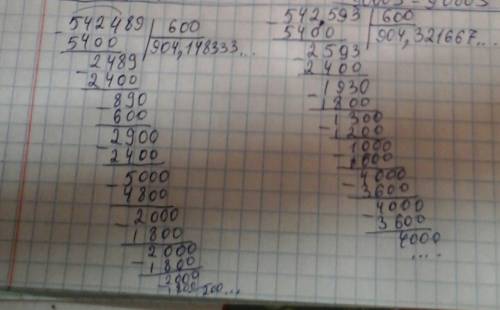 542489 | 600
5400 | 904,148333...
2489
2400
890
600
2900
2400
5000
4800
2000
1800
2000
1800
2000
1800
200...
542,593 | 600
5400 | 904,321667...
2593
2400
1930
1800
1300
1200
1000
4000
3600
4000
3600
4000
....